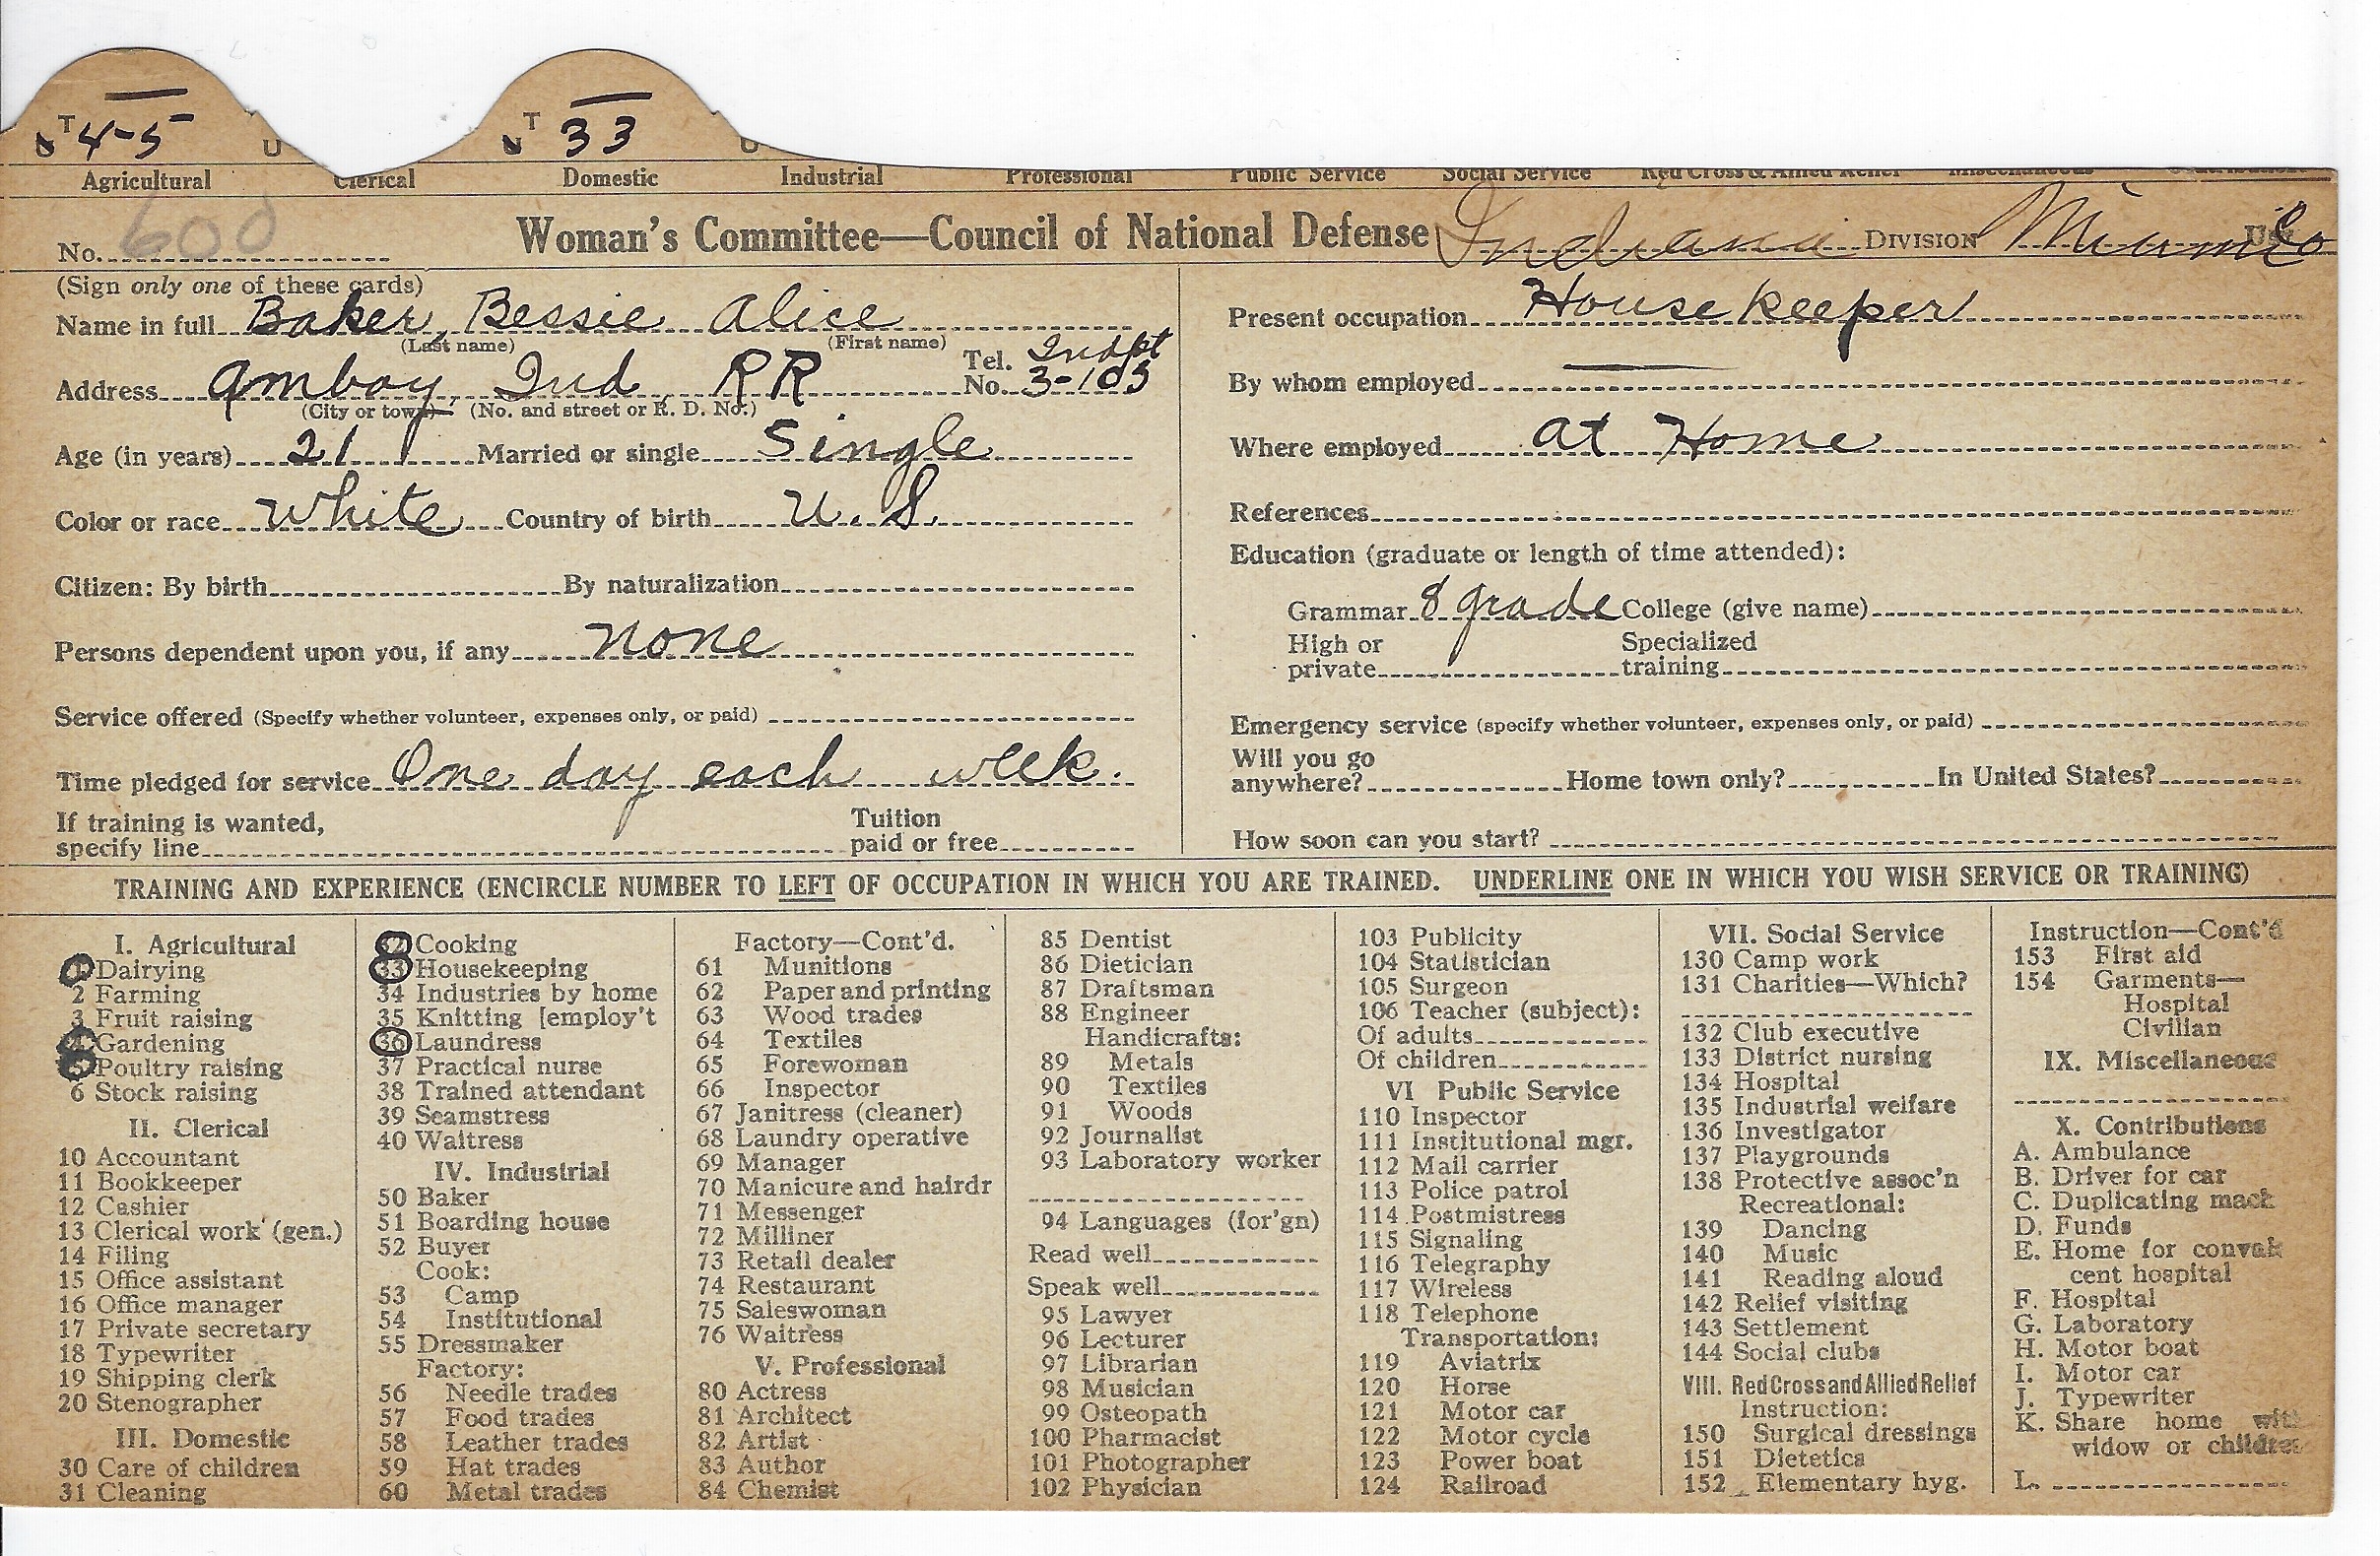 T 4-5 U T 33 U
Agricultural Clerical Domestic Industrial Professional Public Service Social Service Red Cross & Allied Relief Miscellaneous
No. 600 Woman's Committee—Council of National Defense Indiana DIVISION Miami Co
(Sign only one of these cards)
Name in full Baker, Bessie Alice
(Last name) (First name)
Address Amboy, Ind RR Tel. No. Indpt 3-105
(City or town) (No. and street or R. D. No.)
Age (in years) 21 Married or single Single
Color or race White Country of birth U. S.
Citizen: By birth By naturalization
Persons dependent upon you, if any None
Service offered (Specify whether volunteer, expenses only, or paid)
Time pledged for service One day each week.
If training is wanted, Tuition
specify line paid or free
Present occupation Housekeeper
By whom employed —
Where employed at Home
References
Education (graduate or length of time attended):
Grammar 8 grade College (give name)
High or Specialized
private training
Emergency service (specify whether volunteer, expenses only, or paid)
Will you go
anywhere? Home town only? In United States?
How soon can you start?
TRAINING AND EXPERIENCE (ENCIRCLE NUMBER TO LEFT OF OCCUPATION IN WHICH YOU ARE TRAINED. UNDERLINE ONE IN WHICH YOU WISH SERVICE OR TRAINING)
I. Agricultural
1 Dairying
2 Farming
3 Fruit raising
4 Gardening
5 Poultry raising
6 Stock raising
II. Clerical
10 Accountant
11 Bookkeeper
12 Cashier
13 Clerical work (gen.)
14 Filing
15 Office assistant
16 Office manager
17 Private secretary
18 Typewriter
19 Shipping clerk
20 Stenographer
III. Domestic
30 Care of children
31 Cleaning
32 Cooking
33 Housekeeping
34 Industries by home
35 Knitting [employ't
36 Laundress
37 Practical nurse
38 Trained attendant
39 Seamstress
40 Waitress
IV. Industrial
50 Baker
51 Boarding house
52 Buyer
Cook:
53 Camp
54 Institutional
55 Dressmaker
Factory:
56 Needle trades
57 Food trades
58 Leather trades
59 Hat trades
60 Metal trades
Factory—Cont'd.
61 Munitions
62 Paper and printing
63 Wood trades
64 Textiles
65 Forewoman
66 Inspector
67 Janitress (cleaner)
68 Laundry operative
69 Manager
70 Manicure and hairdr
71 Messenger
72 Milliner
73 Retail dealer
74 Restaurant
75 Saleswoman
76 Waitress
V. Professional
80 Actress
81 Architect
82 Artist
83 Author
84 Chemist
85 Dentist
86 Dietician
87 Draftsman
88 Engineer
Handicrafts:
89 Metals
90 Textiles
91 Woods
92 Journalist
93 Laboratory worker
94 Languages (for'gn)
Read well
Speak well
95 Lawyer
96 Lecturer
97 Librarian
98 Musician
99 Osteopath
100 Pharmacist
101 Photographer
102 Physician
103 Publicity
104 Statistician
105 Surgeon
106 Teacher (subject):
Of adults
Of children
VI Public Service
110 Inspector
111 Institutional mgr.
112 Mail carrier
113 Police patrol
114 Postmistress
115 Signaling
116 Telegraphy
117 Wireless
118 Telephone
Transportation:
119 Aviatrix
120 Horse
121 Motor car
122 Motor cycle
123 Power boat
124 Railroad
VII. Social Service
130 Camp work
131 Charities—Which?
132 Club executive
133 District nursing
134 Hospital
135 Industrial welfare
136 Investigator
137 Playgrounds
138 Protective assoc'n
Recreational:
139 Dancing
140 Music
141 Reading aloud
142 Relief visiting
143 Settlement
144 Social clubs
VIII. Red Cross and Allied Relief
Instruction:
150 Surgical dressings
151 Dietetics
152 Elementary hyg.
Instruction—Cont'd
153 First aid
154 Garments—
Hospital
Civilian
IX. Miscellaneous
X. Contributions
A. Ambulance
B. Driver for car
C. Duplicating mach
D. Funds
E. Home for conval
cent hospital
F. Hospital
G. Laboratory
H. Motor boat
I. Motor car
J. Typewriter
K. Share home with
widow or children
L.